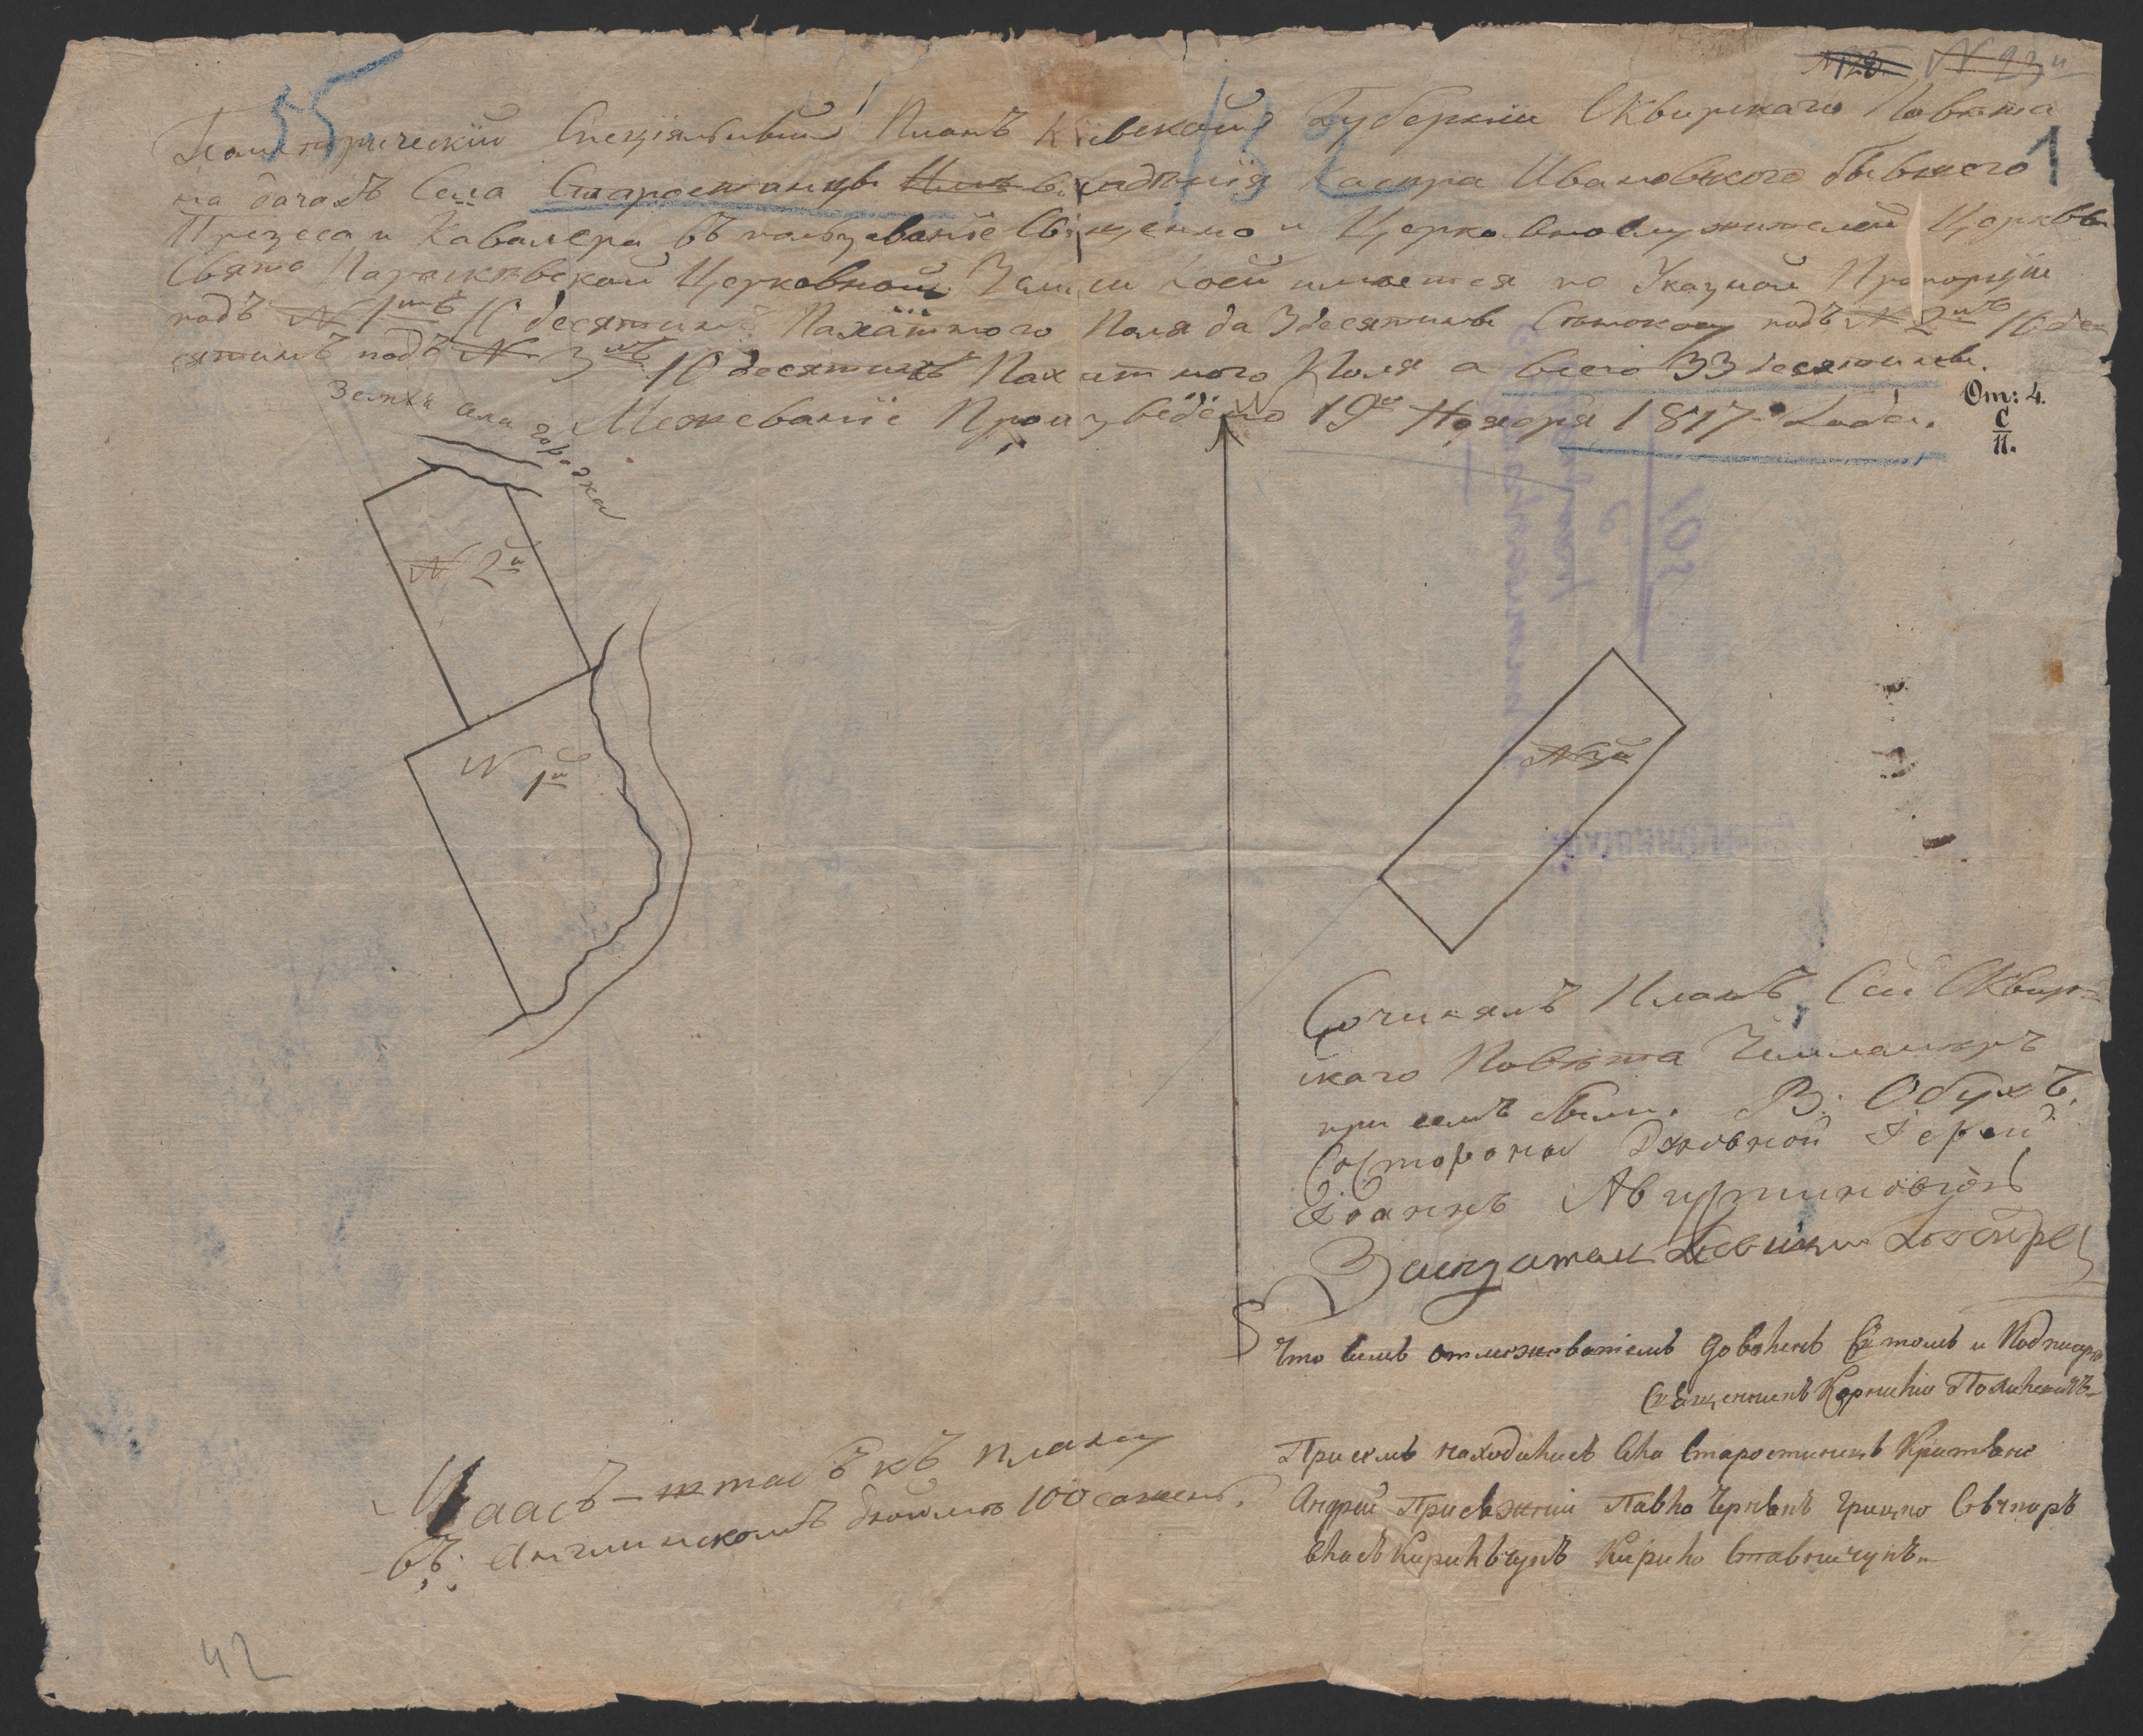 N 23й
55
132
1
Геометрическій Спеціяльный Планъ Кіевской Губерніи Сквирскаго Повѣта
на дачахъ Села Старостинцы владѣнія Каспра Ивановского бывшего
Презеса и Кавалера въ пользованіе Священно и Церковнослужителей Церквы
Свято Параскевской Церковной Земли коей имѣется по Указной Пропорціи
подъ N 1мъ 10 десятинъ Пахатного Поля да 3 десятины Сѣнокосу подъ N 2мъ 10 де
сятинъ подъ N 3мъ 10 десятинъ Пахатного Поля а всего 33 десятины.
Межеваніе Произведено 19го Ноября 1817 Года.
От: 4.
С
П.
Земля села городка
N 2й
N 1й
N 3й
Сочинялъ Планъ Сей Сквир=
скаго Повѣта Землемѣръ
при семъ были. В: Обухъ.
Состороны Духовной Іерей
Іоаннъ Августиновичъ
Что симъ отмежеваніемъ доволенъ Въ томъ и Подписуюсь
Священникъ Корнилій
При семъ находились села Старостинецъ Крестяне
Андрей Присяжній Павло Чернякъ Грицко
Власъ Кирило
Маасъ-штабъ къ плану
въ Англинскомъ дюймѣ 100 сажень.
42